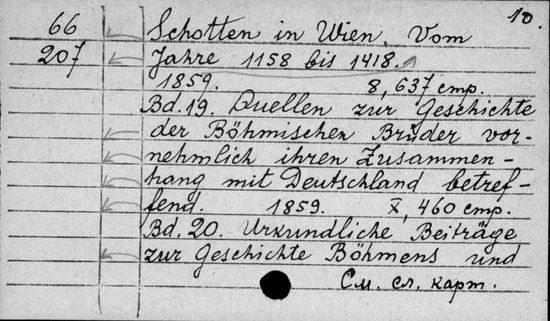 10.
66 Schotten in Wien, Vom
207 Jahre 1158 bis 1418.
1859. 8, 637 стр.
Bd. 19. Quellen zur Geschichte
der Böhmischen Brüder vor-
nehmlich ihren Zusammen-
hang mit Deutschland betref-
fend. 1859. X, 460 стр.
Bd. 20. Urkundliche Beiträge
zur Geschichte Böhmens und
См. сл. карт.